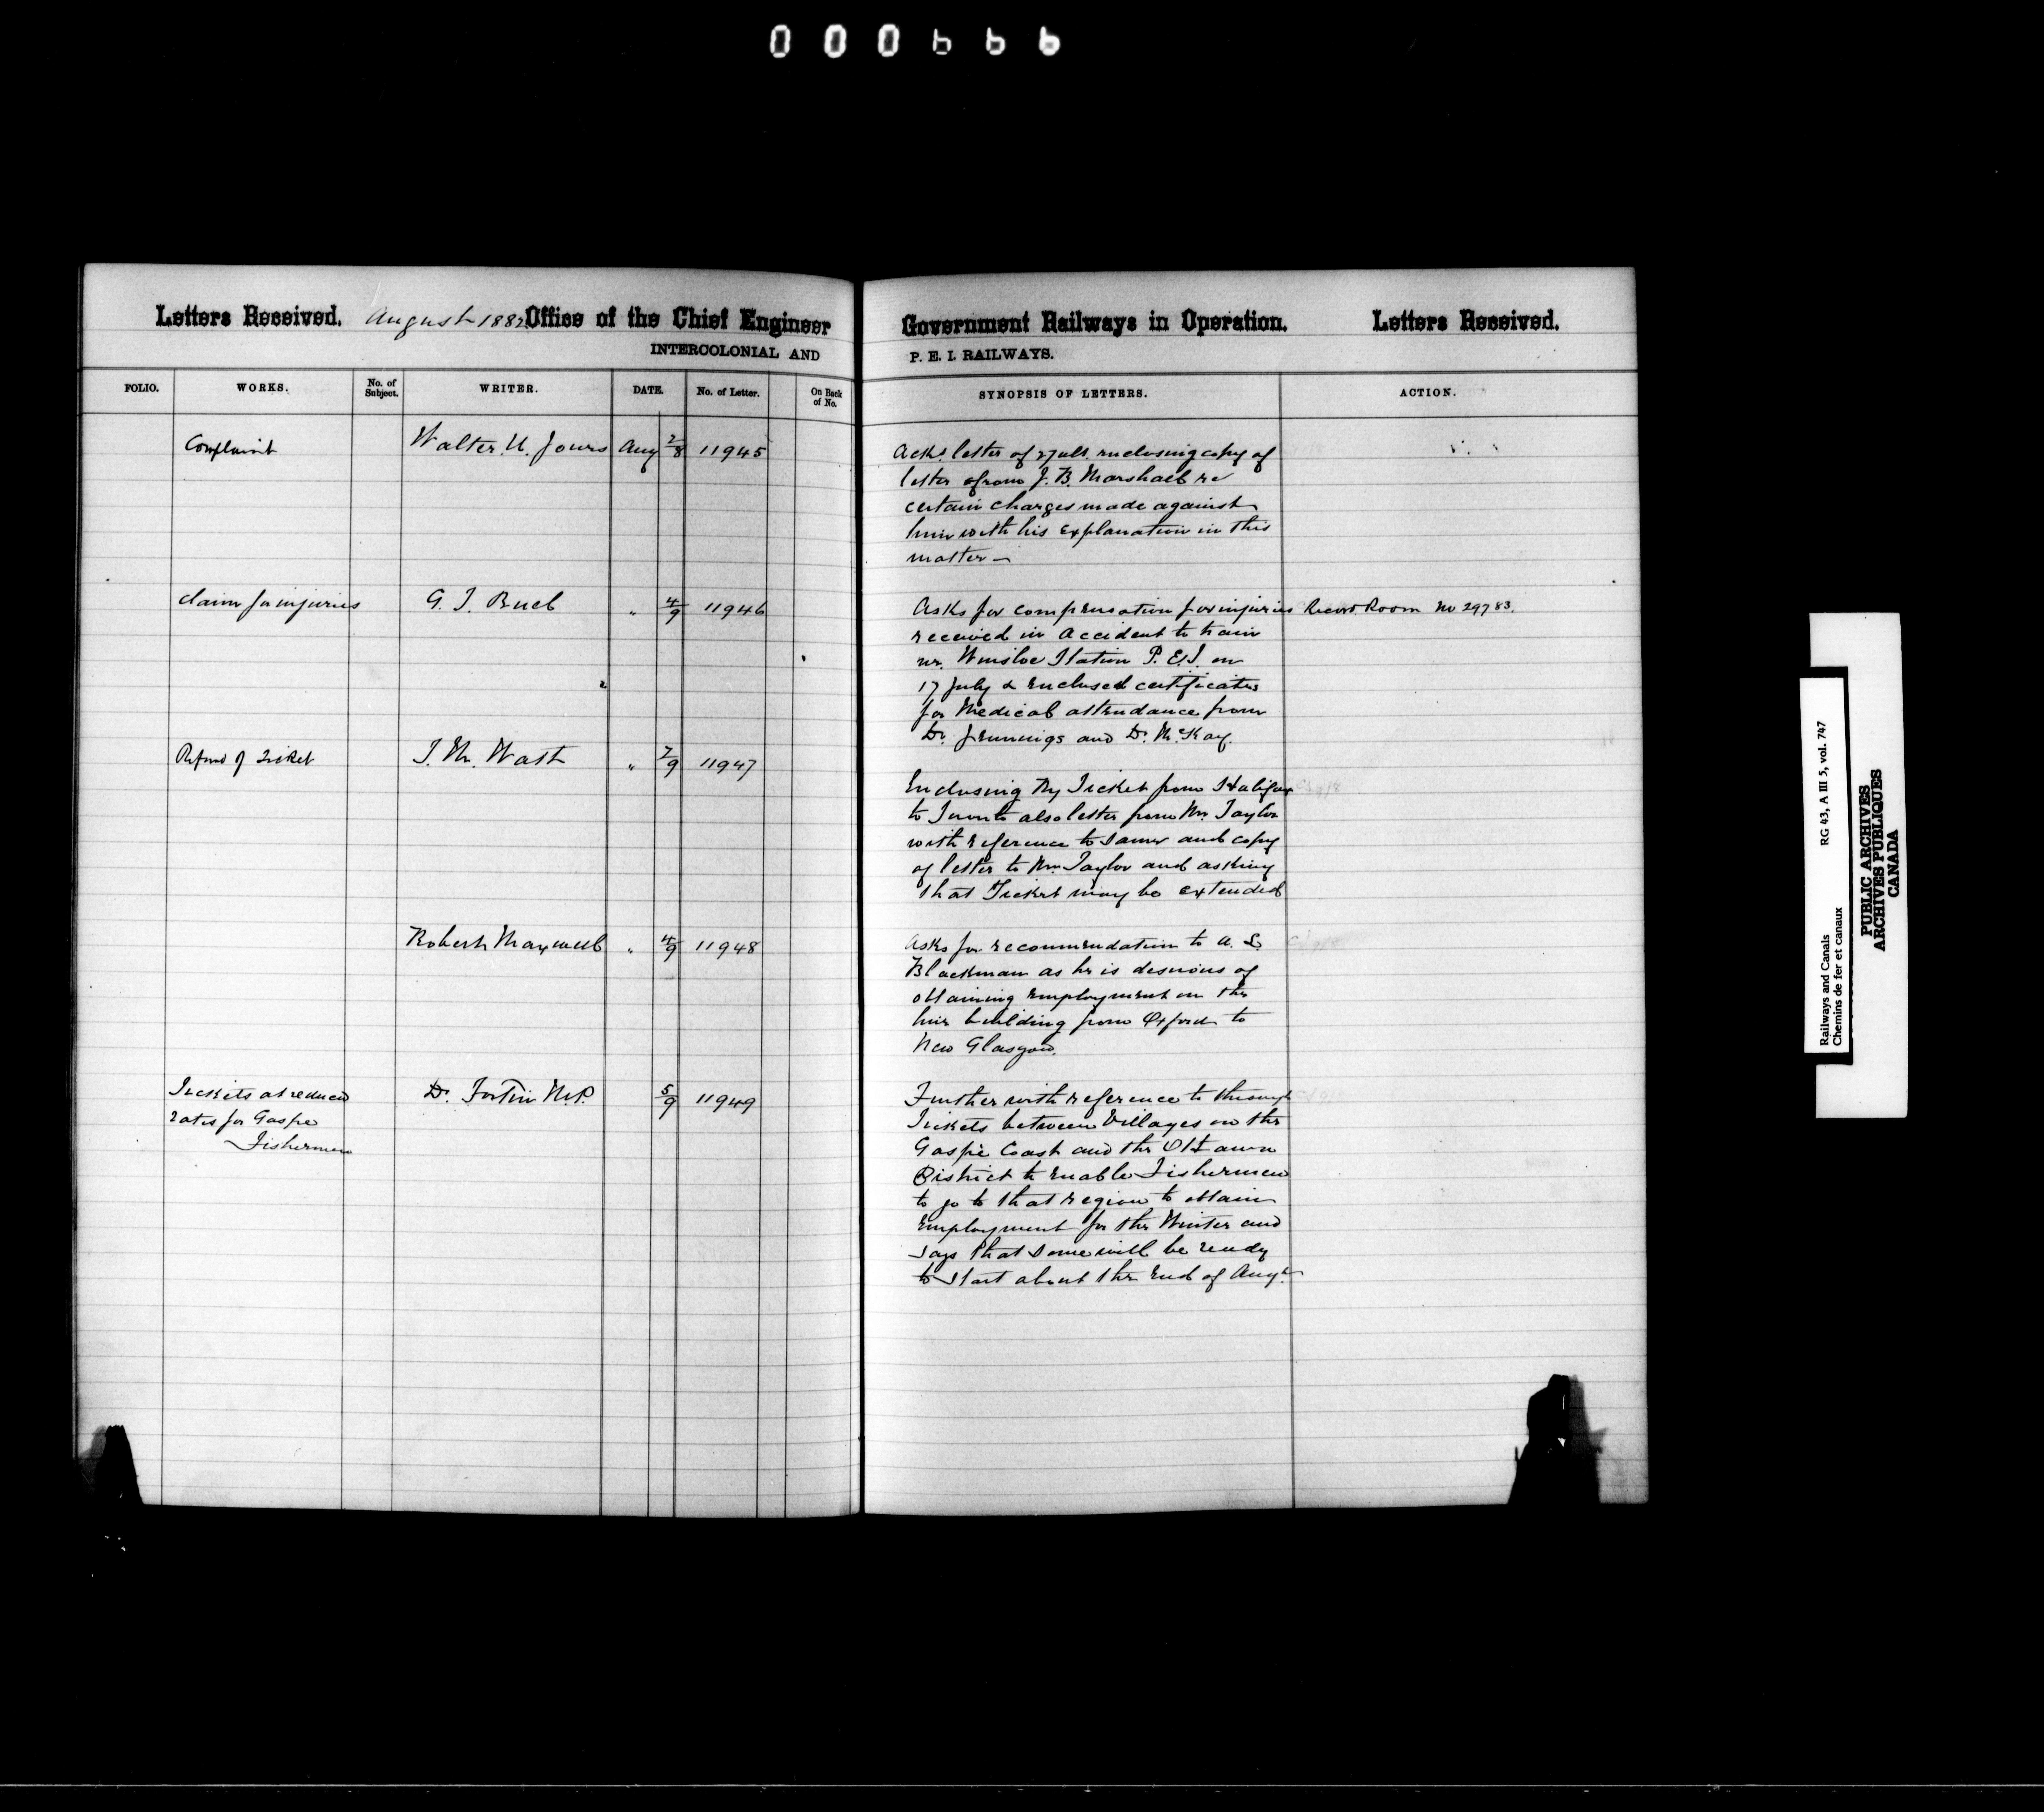 000666
Letters Received. August 1882 Office of the Chief Engineer
INTERCOLONIAL AND
FOLIO. WORKS. No. of Subject. WRITER. DATE. No. of Letter. On Back of No.
Complaint Walter U. Jones Aug 2/8 11945
Claim for injuries G. T. Buel " 4/9 11946
Refund of Ticket " 7/9 11947
Robert Maxwell " 4/9 11948
Tickets at reduced Dr. Fortin M.P. 5/9 11949
rates for Gaspe
Fishermen
Government Railways in Operation. Letters Received.
P. E. I. RAILWAYS.
SYNOPSIS OF LETTERS. ACTION.
Acks letter of 27 ult. enclosing copy of
letter from J. B. Marshall re
certain charges made against
him with his explanation in this
matter —
Asks for compensation for injuries Record Room No 29783.
received in Accident to train
nr. Winsloe Station P. E. I. on
17 July & enclosed certificates
for Medical attendance from
Dr. Jennings and Dr. McKay.
Enclosing Ry Ticket from Halifax
to Toronto also letter from Mr. Taylor
with reference to same and copy
of letter to Mr. Taylor and asking
that Ticket may be extended
Asks for recommendation to A. L.
Blackman as he is desirous of
obtaining employment on the
line building from Oxford to
New Glasgow.
Further with reference to through
Tickets between Villages on the
Gaspè Coast and the Ottawa
District to enable Fishermen
to go to that region to obtain
Employment for the Winter and
says that some will be ready
to start about the end of Augt.
Railways and Canals RG 43, A III 5, vol. 747
Chemins de fer et canaux
PUBLIC ARCHIVES
ARCHIVES PUBLIQUES
CANADA